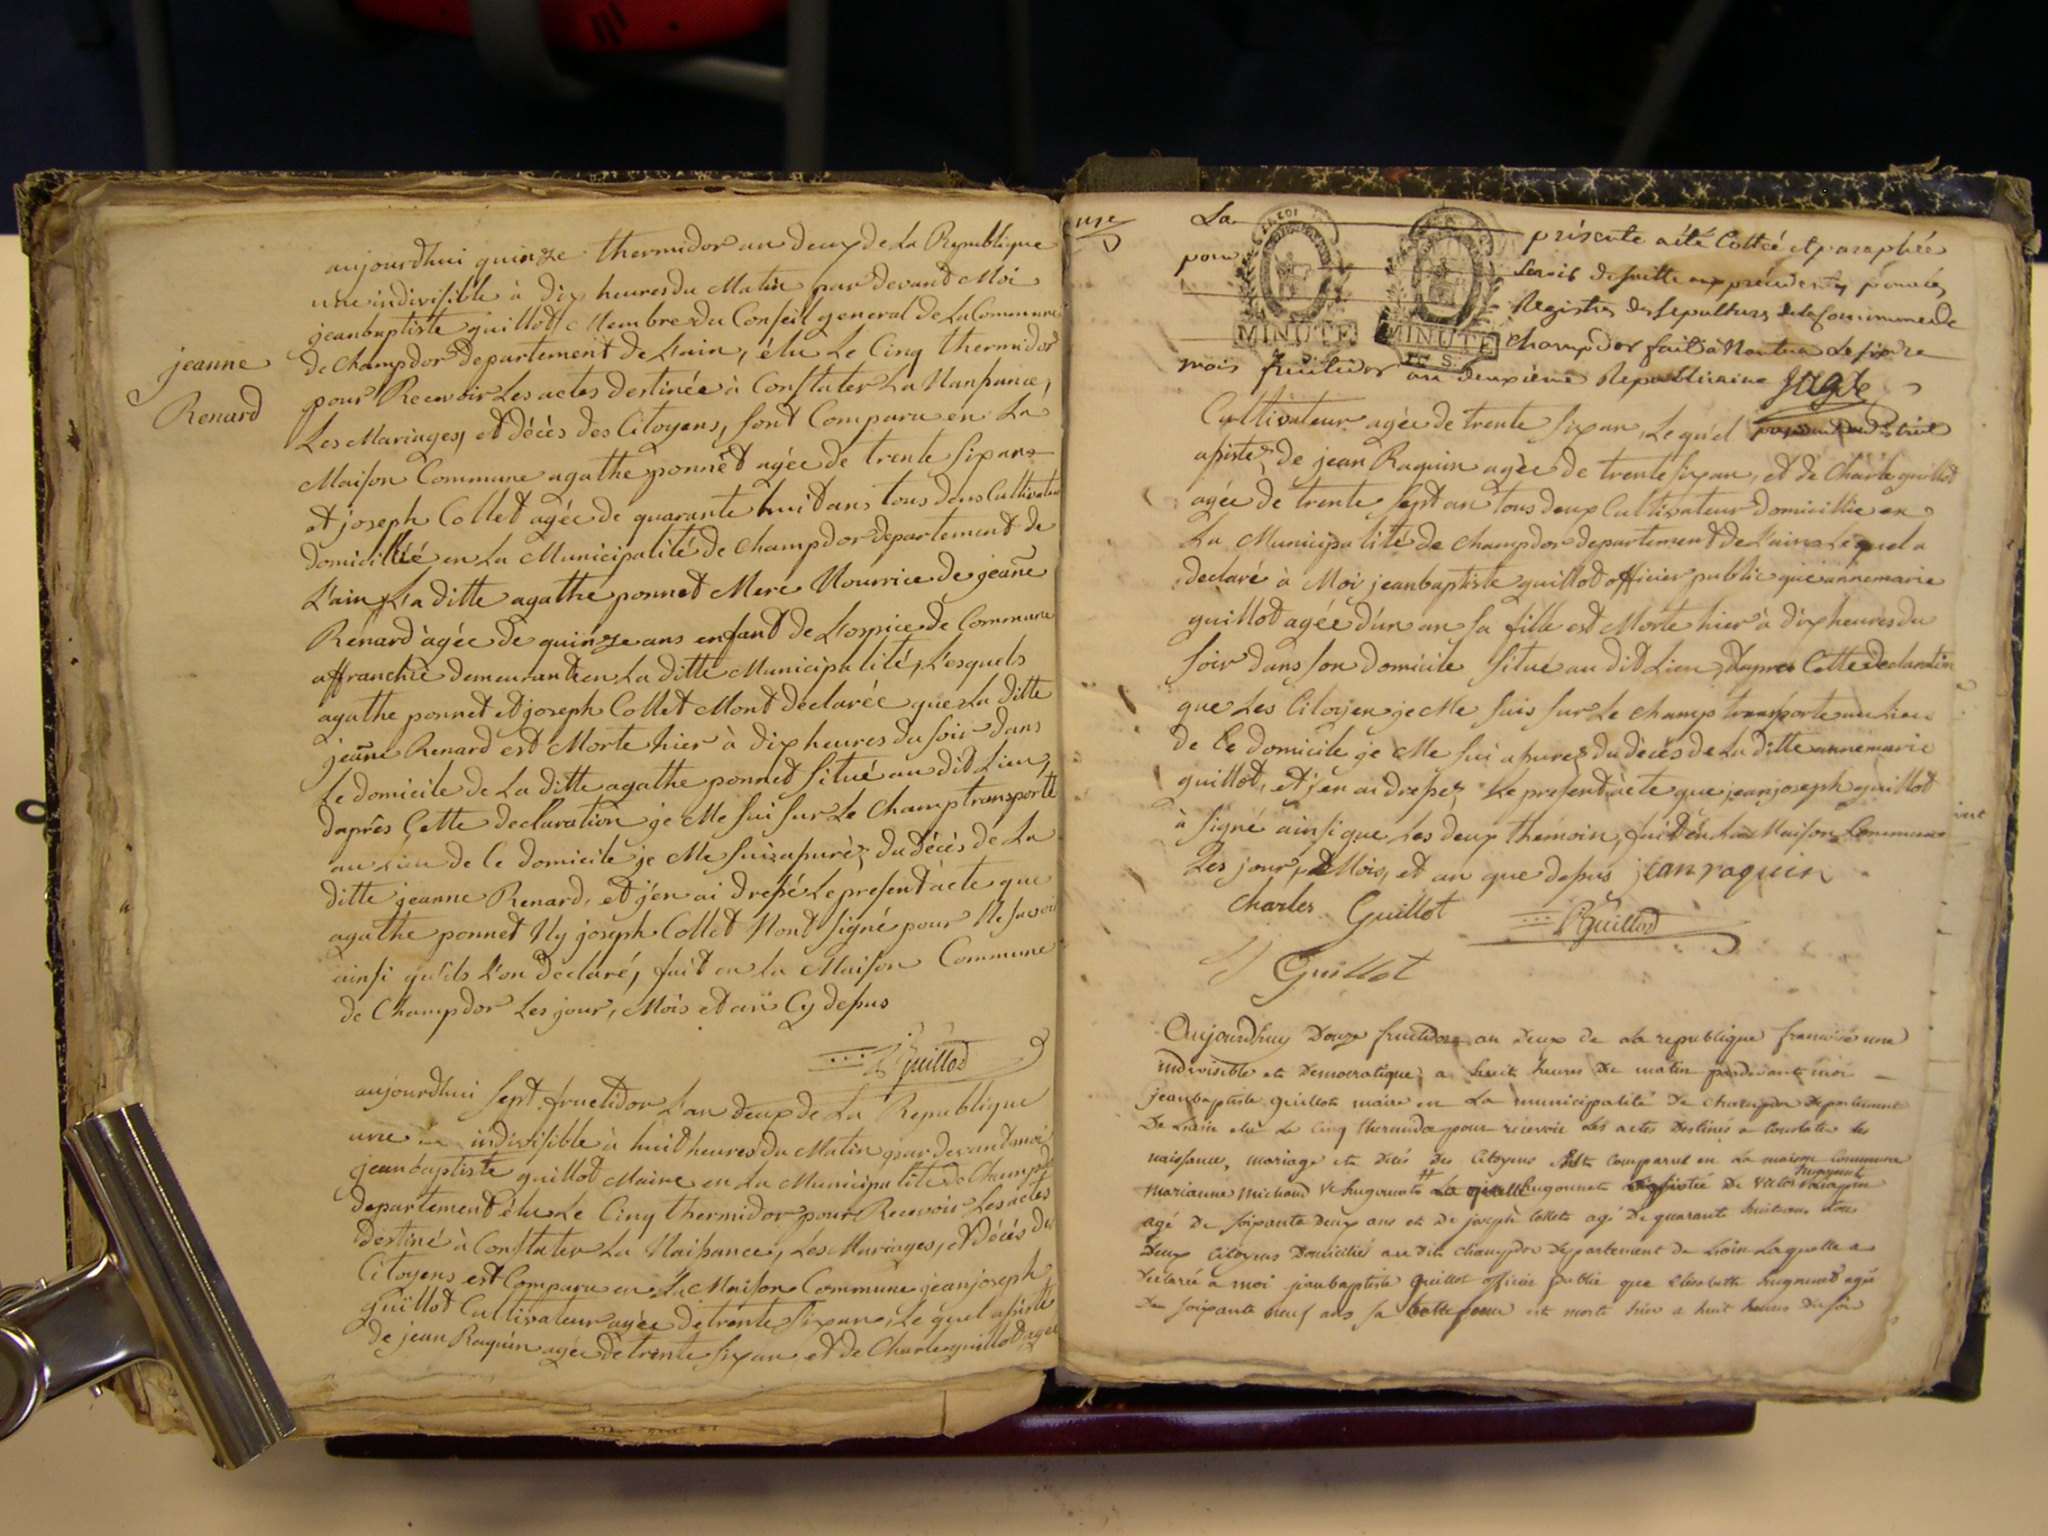 jeanne
Renard
aujourdhui quinze thermidor an deux de La Republique
une indivisible à dix heures du Matin par devant Moi
jeanbaptiste guillot Membre du Conseil general de La Commune
de Champdor departement de L'ain, élu Le Cinq thermidor
pour Recevoir Les actes destinée à Constater La Nanssance,
Les Mariages, et décès des Citoyens, sont Comparu en La
Maison Commune agathe ponnet agée de trente six ans
et joseph Collet agée de quarante huit ans tous deux Cultivateur
domicillié en La Municipalité de Champdor departement de
L'ain L'a ditte agathe ponnet Mere Nourrice de jeane
Renard àgée de quinze ans enfant de L'ospice de Commune
affranchie demeurante en La ditte Municipalité, L'esquels
agathe ponnet et joseph Collet Mont declarée que La ditte
jeane Renard est Morte hier à dix heures du soir dans
Le domicile de La ditte agathe ponnet situé au dit Lieu,
daprês Cette declaration je Me sui sur Le Champ transporté
au Lieu de Ce domicile je Me suis assurèz du décès de La
ditte jeanne Renard, et j'en ai dressé Le present àcte que
agathe ponnet Ny joseph Collet Nont signé pour Ne savoir
ainsi qu'ils L'on declaré, fait en la Maison Commune
de Champdor Les jour, Mois et an Cy dessus
Guillod
aujourdhui sept fructidor L'an deux de La Republique
une indivisible à huit heures du Matin par devant moi
jeanbaptiste guillod Maire en La Municipalité de Champdor
departement élu Le Cinq thermidor pour Recevoir Les actes
destiné à Constater La Naissance, Les Mariages, et décès des
Citoyens est Comparu en La Maison Commune jeanjoseph
guillot Cultivateur agée de trente six an, Le quel assisté
de jean Raquin agée de trente six an et de Charle guillot agée
La présente a été Cottée et paraphée
pour servir de suitte aux précédents
Registres de sepultures de la Commune de
Champdor fait à Nantua le six
mois fructidor an deuxième Republicaine
MINUTE MINUTE
Cultivateur agée de trente six an, Le quel
assistez de jean Raquin agée de trente six an, et de Charle guillot
agée de trente sept an tous deux Cultivateur domicillié en
La Municipalité de Champdor departement de L'ain Lequel a
declaré à Moi jeanbaptiste guillot officier public que annemarie
guillot agée d'un an sa fille est Morte hier à dix heures du
soir dans son domicile situé au dit Lieu, daprès Cette declaration
que Les Citoyen je Me suis sur Le champ transporte au Lieu
de Ce domicile je Me sui assurez du décès de La ditte annemarie
guillot, et j'en ai dressez Le present àcte que jeanjoseph guillot
à signé ainsi que Les deux themoin, fait en La Maison Commune
Les jour, Mois, et an que dessus jean raquin
charles Guillot Guillod
Guillot
Aujourdhuy Douze fructidor an Deux de la republique francaise une
indivisible et Democratique a huit heures De matin pardevant moi
jeanbaptiste guillot maire en La municipalité De champdor Departement
De L'ain elu Le Cinq thermidor pour recevoir Les actes Destinés a Constater les
naissance, mariage et Décés Des Citoyens Est Comparut en La maison Commune
marianne michaud Ve hugonnet hugonnet De victor
agé De soixante Deux ans et De joseph Collet agé De quarante huit ans tous
Deux Citoyens Domicilié au Dit champdor Departement De L'ain Laquelle a
declarée a moi jeanbaptiste guillot officier public que Elisabeth hugonnet agée
De soixante neuf ans sa belle soeur est morte hier a huit heures Du soir